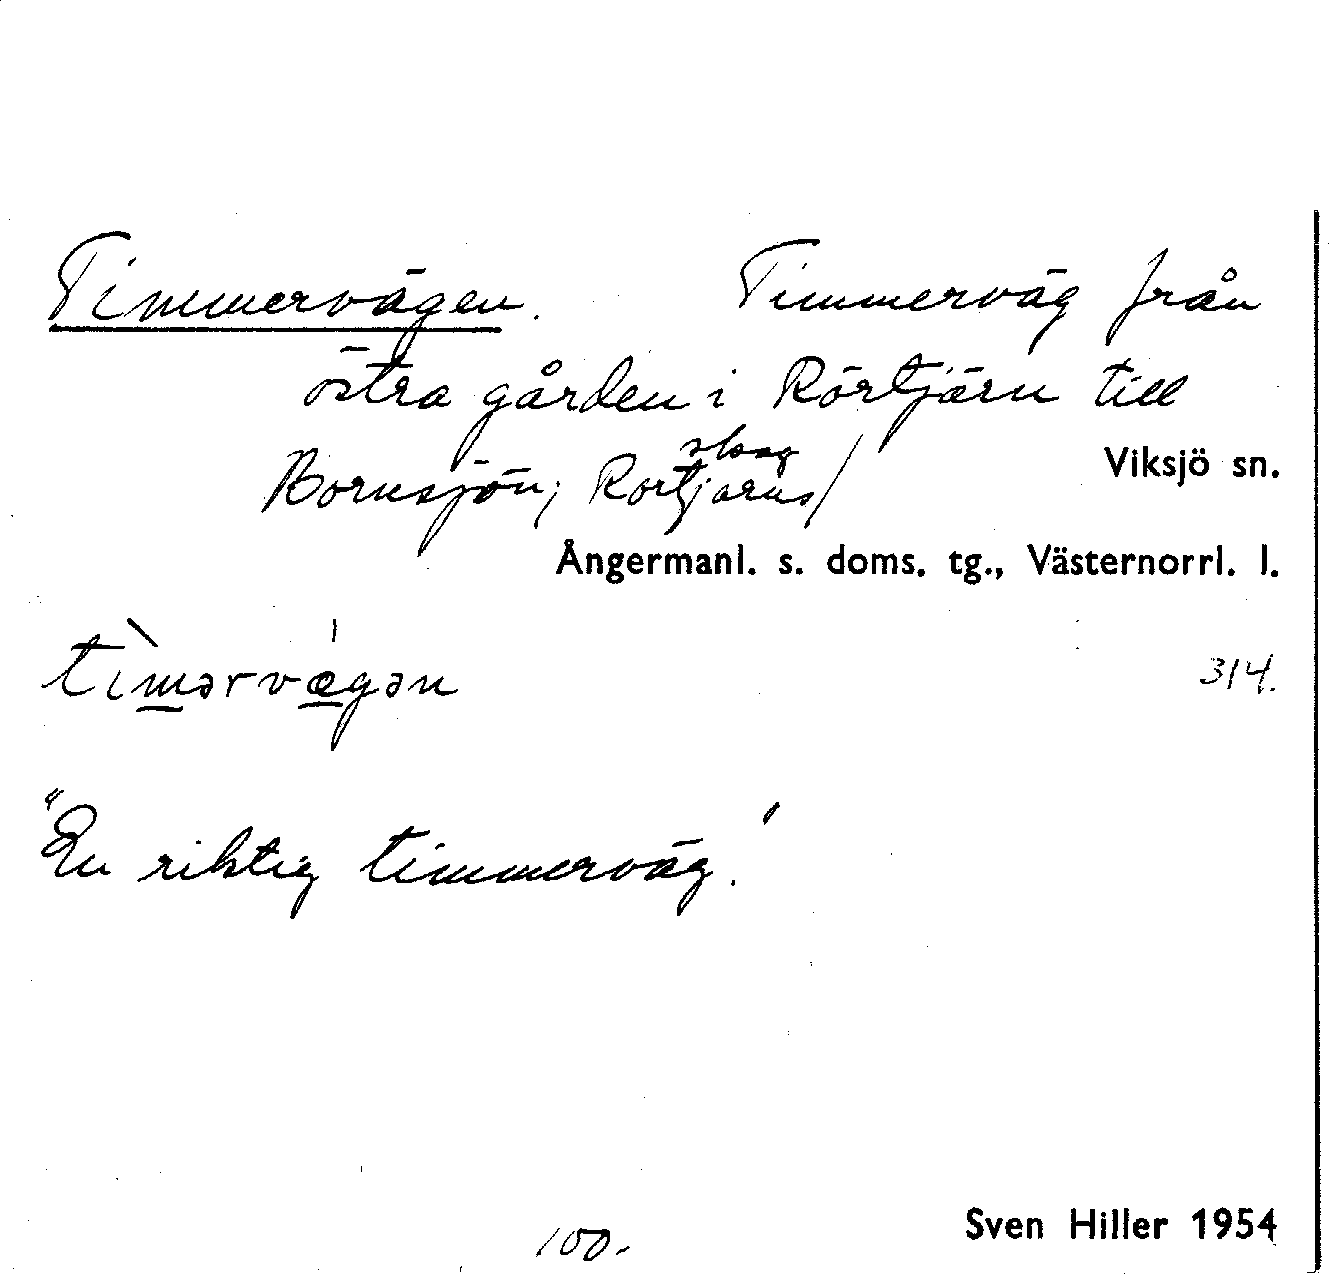 Timmervägen. Timmerväg från
östra gården i Rörtjärn till
Bornsjön; Rörtjärns skog/ Viksjö sn.
Ångermanl. s. doms. tg., Västernorrl. l.
tìmərvǽgən 314.
"En riktig timmerväg."
100.
Sven Hiller 1954